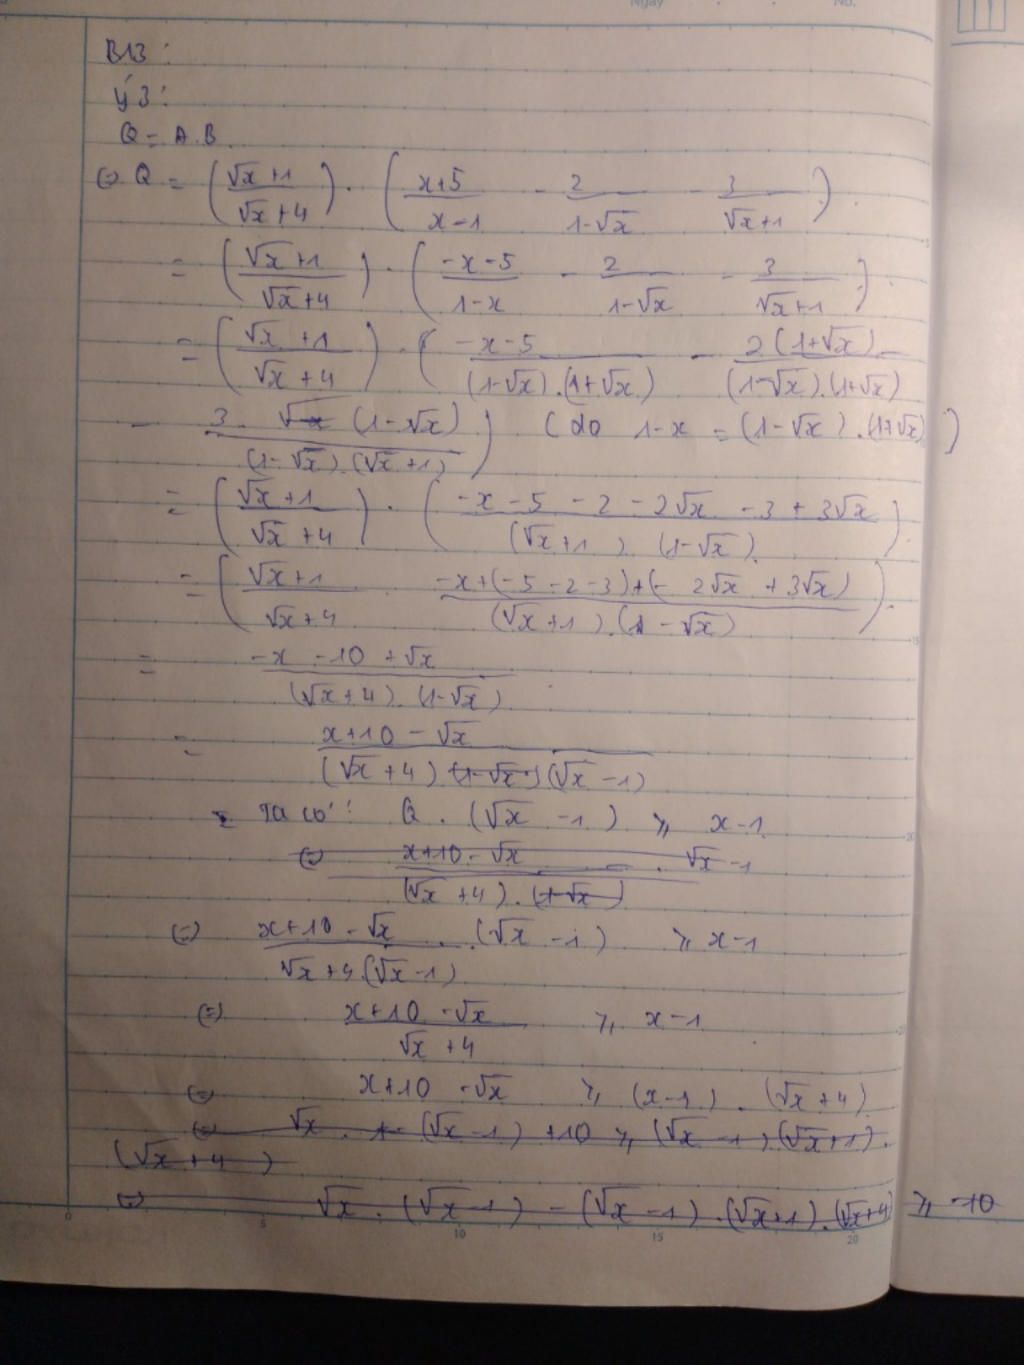 Ngày No.
B13:
ý 3:
Q = A.B
⇔ Q = (√x+1 / √x+4) . (x+5 / x-1 - 2 / 1-√x - 3 / √x+1)
= (√x+1 / √x+4) . (-x-5 / 1-x - 2 / 1-√x - 3 / √x+1)
= (√x+1 / √x+4) . (-x-5 / (1-√x).(1+√x) - 2(1+√x) / (1-√x).(1+√x)
- 3. (1-√x) / (1-√x).(√x+1)) (do 1-x = (1-√x).(1+√x))
= (√x+1 / √x+4) . (-x-5-2-2√x-3+3√x / (√x+1).(1-√x)).
= (√x+1 / √x+4 -x+(-5-2-3)+(-2√x+3√x) / (√x+1).(1-√x)).
= -x-10+√x / (√x+4).(1-√x)
= x+10-√x / (√x+4) (1-√x) (√x-1)
Ta có: Q.(√x-1) ⩾ x-1
⇔ x+10-√x / (√x+4).(1-√x) . √x-1
⇔ x+10-√x / √x+4.(√x-1) . (√x-1) ⩾ x-1
⇔ x+10-√x / √x+4 ⩾ x-1
⇔ x+10-√x ⩾ (x-1).(√x+4)
⇔ √x. (√x-1) +10 ⩾ (√x-1)(√x+1).
(√x+4)
⇔ √x.(√x-1) - (√x-1).(√x+1).(√x+4) ⩾ -10
0 5 10 15 20